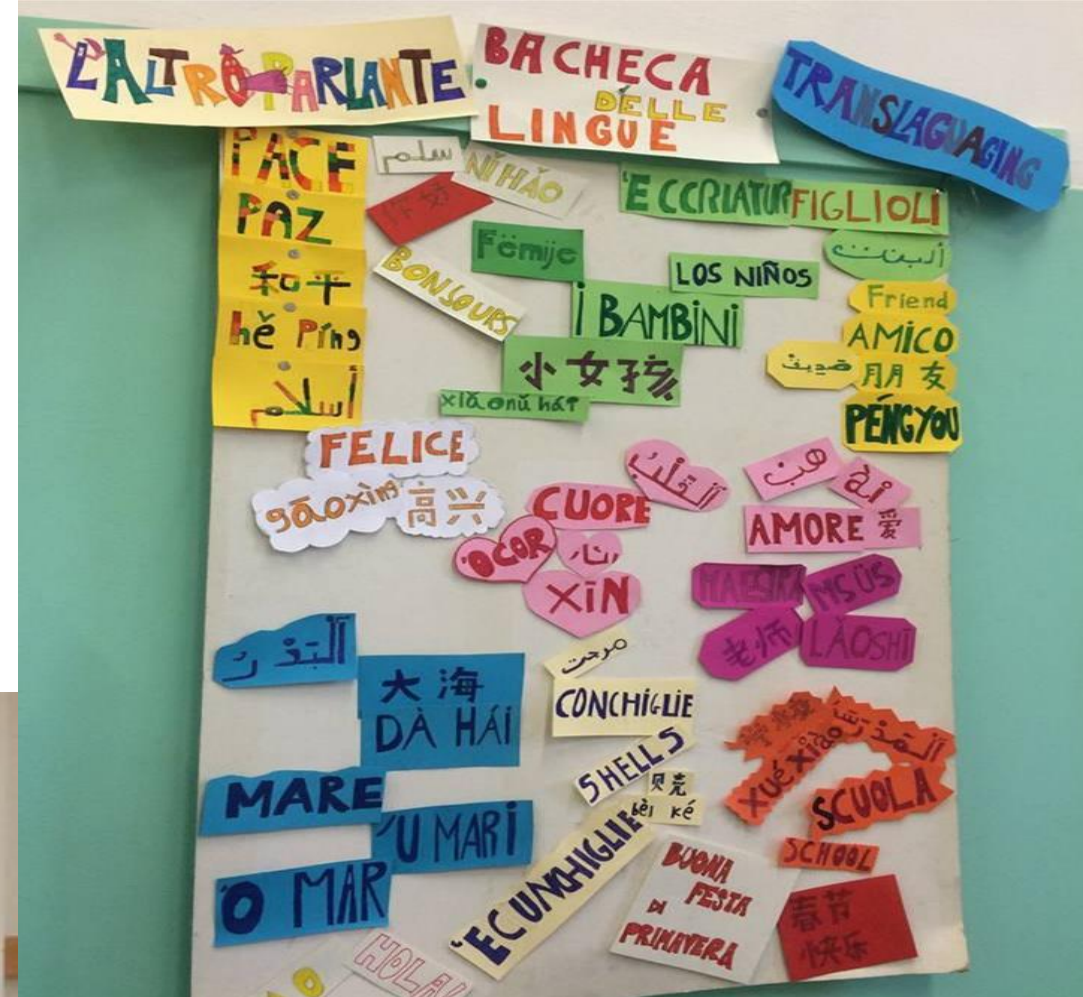 L'ALTROPARLANTE
BACHECA
DELLE
LINGUE
TRANSLAGUAGING
PACE
PAZ
和平
hě Píng
أسلام
سلم
NǏ HǍO
你好
BONSOURS
Fëmije
'E CCRIATUR
FIGLIOLI
LOS NIÑOS
I BAMBINI
小女孩
xiǎo nǚ hái
ألبنت
Friend
AMICO
朋友
PÉNGYOU
FELICE
gāoxìng
高兴
CUORE
'O COR
XĪN
ài
AMORE 爱
MAESTRA
MSÚS
老师
LǍOSHĪ
大海
DÀ HÁI
MARE
'U MARI
'O MAR
CONCHIGLIE
SHELLS
贝壳
bèi ké
'E CUNCHIGLIE
xué xiào
SCUOLA
SCHOOL
BUONA
FESTA
DI
PRIMAVERA
春节
快乐
HOLA